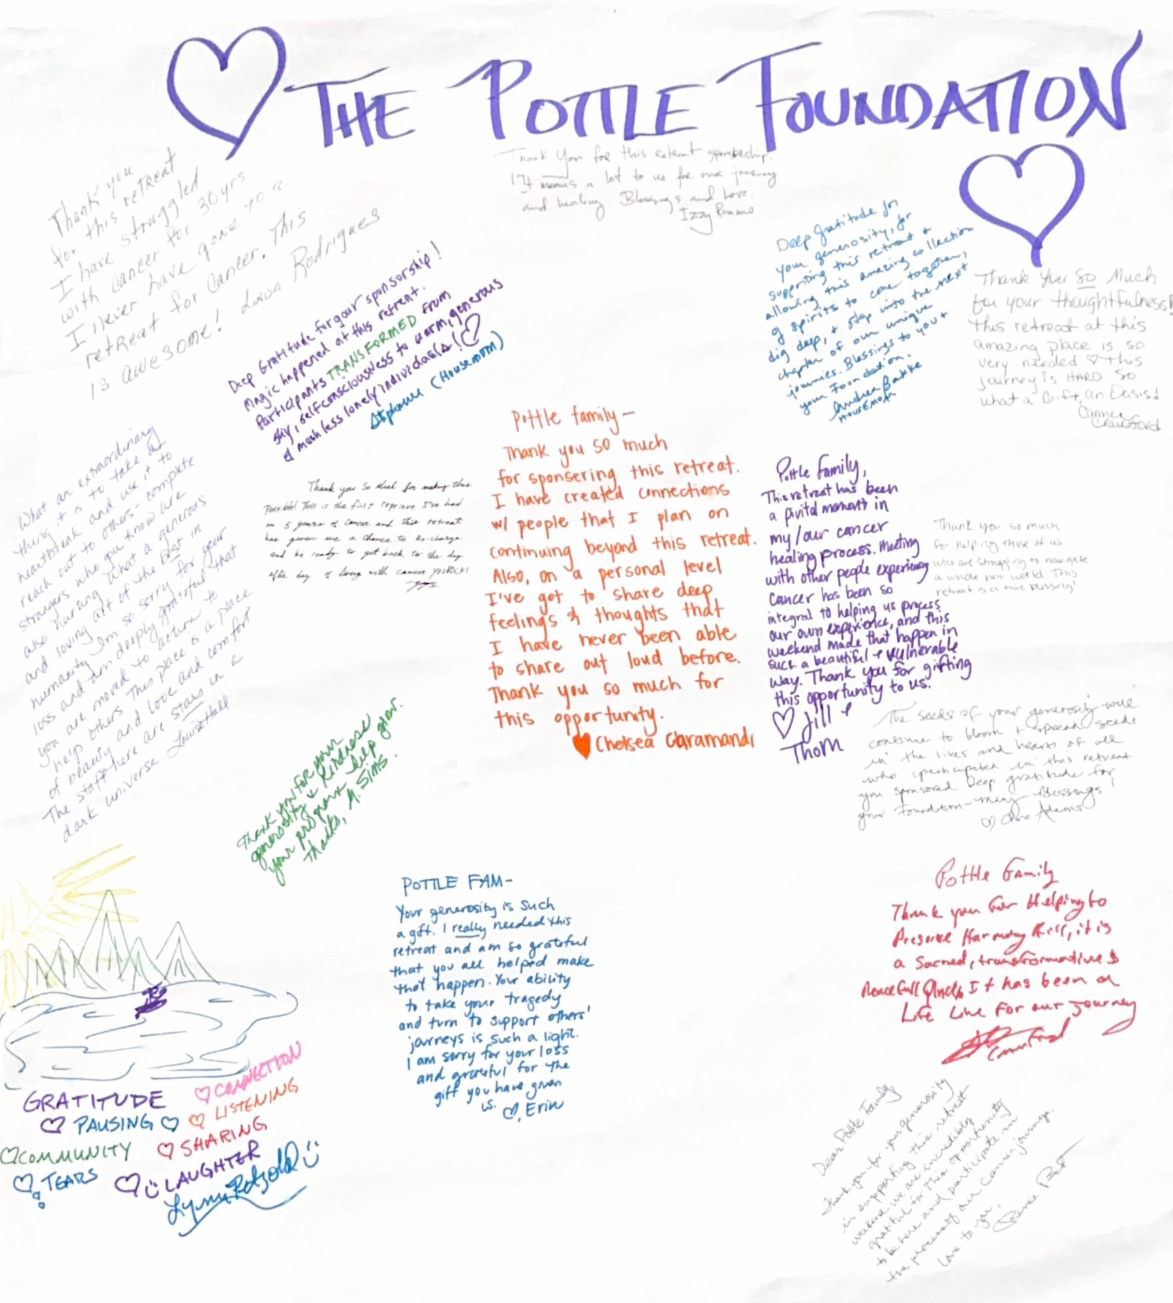 THE POTTLE FOUNDATION
Thank You for this retreat sponsorship.
It means a lot to us for our journey
and healing Blessings and Love.
Izzy
Thank you
for this retreat
I have struggled
with cancer for 30yrs
I never have gone to a
retreat for Cancer. This
is awesome! Linda Rodrigues
Deep Gratitude for your sponsorship!
Magic happened at this retreat.
Participants TRANSFORMED from
shy, selfconsciousness to warm, generous
& much less lonely individuals!
Stephanie (Housemom)
Deep Gratitude for
your generosity, for
supporting this retreat &
allowing this amazing collection
of spirits to come together,
dig deep, & step into the next
chapter of our unique
journies. Blessings to you &
your Foundation.
Andrea Bakke
Housemom
Thank You So Much
for your thoughtfulness!
this retreat at this
amazing place is so
very needed this
journey is HARD. So
what a Gift, an Oasis!
Crawford
What an extraordinary
thing it is to take
heartbreak and use it to
reach out to others' complete
strangers who you know are
also hurting. What a generous
and loving act of the best in
humanity. I'm so sorry for your
loss and I'm deeply grateful that
you are moved to action to
help others. This place is a place
of beauty and love and comfort
The staff here are stars in a
dark universe
Thank you So Much for making this
Possible! This is the first reprieve I've had
in 5 years of cancer and this retreat
has given me a chance to Re-charge
and be ready to get back to the day
after day of living with cancer
Pottle family—
Thank you so much
for sponsering this retreat.
I have created connections
w/ people that I plan on
continuing beyond this retreat.
Also, on a personal level
I've got to share deep
feelings & thoughts that
I have never been able
to share out loud before.
Thank you so much for
this opportunity.
Chelsea Claramandi
Pottle Family,
This retreat has been
a pivital moment in
my/our cancer
healing process. Meeting
with other people experiencing
cancer has been so
integral to helping us process
our own experience, and this
weekend made that happen in
such a beautiful & vulnerable
way. Thank you for gifting
this opportunity to us.
Jill &
Thom
Thank you so much
for helping those of us
who are struggling to navigate
a whole new world. This
retreat is a true blessing!
The seeds of your generosity will
continue to bloom & spread seeds
in the lives and hearts of all
who participated in this retreat
you sponsored Deep gratitude for
your Foundation— many Blessings!
Adams
Thank you for your
generosity & kindness
your program. Deep
Thanks, A. Sims
POTTLE FAM-
Your generosity is such
a gift. I really needed this
retreat and am so grateful
that you all helped make
that happen. Your ability
to take your tragedy
and turn to support others'
journeys is such a light.
I am sorry for your loss
and grateful for the
gift you have given
us. Erin
Pottle Family
Thank you for Helping to
Preserve Harmony Hill, it is
a Sacred, transformative &
Peacefull It has been a
Life Line for our Journey
GRATITUDE
CONNECTION
PAUSING
LISTENING
COMMUNITY
SHARING
TEARS
LAUGHTER
Lynn
Dear Pottle Family
Thank you for your generosity
in supporting this retreat
weekend we are incredibly
grateful for this opportunity
to be here and participate in
the process of our cancer journey.
Love to you,